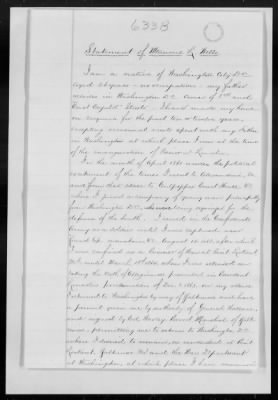 6338
Statement of Maurice G. Wells
I am a native of Washington City D.C.
aged 26 years – no occupation – my father
resides in Washington D.C. corner of 2nd and
East Capitol Streets. I have made my home
in Virginia for the past ten or twelve years
excepting occasional visits spent with my father
in Washington at which place I was at the time
of the inauguration of Lincoln
In the month of April 1861 under the political
excitement of the times I went to Alexandria, Va
and from that place to Culpepper Court House, Va
where I joined a company of young men principally
from Washington D.C. who were being organized for the
defence of the South. I served in the Confederate
Army as a soldier until I was captured near
August 1863, after which
I was confined as a Prisoner of War at Point Lookout
Md. until March 1864 when I was released on
taking the oath of allegiance presented in President
Lincoln's proclamation of Dec. 8 1863, on my release
I returned to Washington by way of Baltimore and have
a parole given me by authority of General
and signed by Provost Marshal of
permitting me to return to Washington D.C.
where I desired to remain, as recorded at Point
Lookout, Baltimore Md and the War Department
at Washington, at which place I have remained